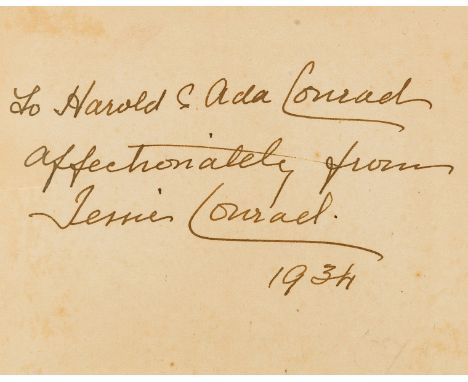 To Harold & Ada Conrad
affectionately from
Jessie Conrad.
1934